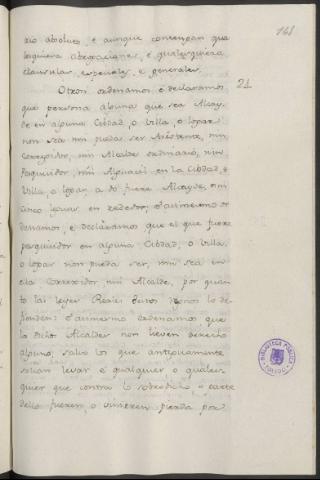 161
rio absoluto, e aunque contengan qua
lesquiera abrogaciones, e qualesquiera
clausulas, especiales, e generales.
21
Otrosi ordenamos e declaramos
que persona alguna que sea Alcay
de en alguna Cibdad, o Villa, o logar
non sea nin pueda ser Asistente, nin
Corregidor, nin Alcalde ordinario, nin
Pesquisidor, nin Alguacil en la Cibdad, o
Villa, o logar a do fuere Alcayde, nin
cinco leguas en rededor, e asimesmo or
denamos, e declaramos que el que fuere
pesquisidor en alguna Cibdad, o Villa
o logar non pueda ser, nin sea en
ella Corregidor nin Alcalde, por quan
to las leyes Reales destos Regnos lo de
fienden: e asimesmo ordenamos que
los dichos Alcaldes non lieven derecho
alguno, salvo los que antiguamente
solian levar e qualquier o quales
quier que contra lo sobredicho, o parte
dello fueren, o vinieren pierda por
BIBLIOTECA PUBLICA
TOLEDO